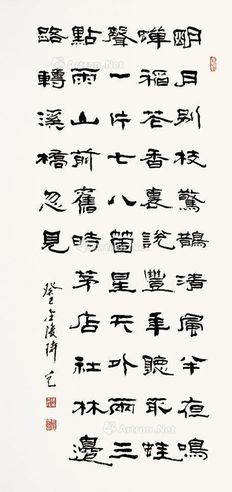 明月別枝驚鵲清風半夜鳴
蟬稻花香裏說豐年聽取蛙
聲一片七八箇星天外兩三
點雨山前舊時茅店社林邊
路轉溪橋忽見
癸巳金陵
Artron.Net